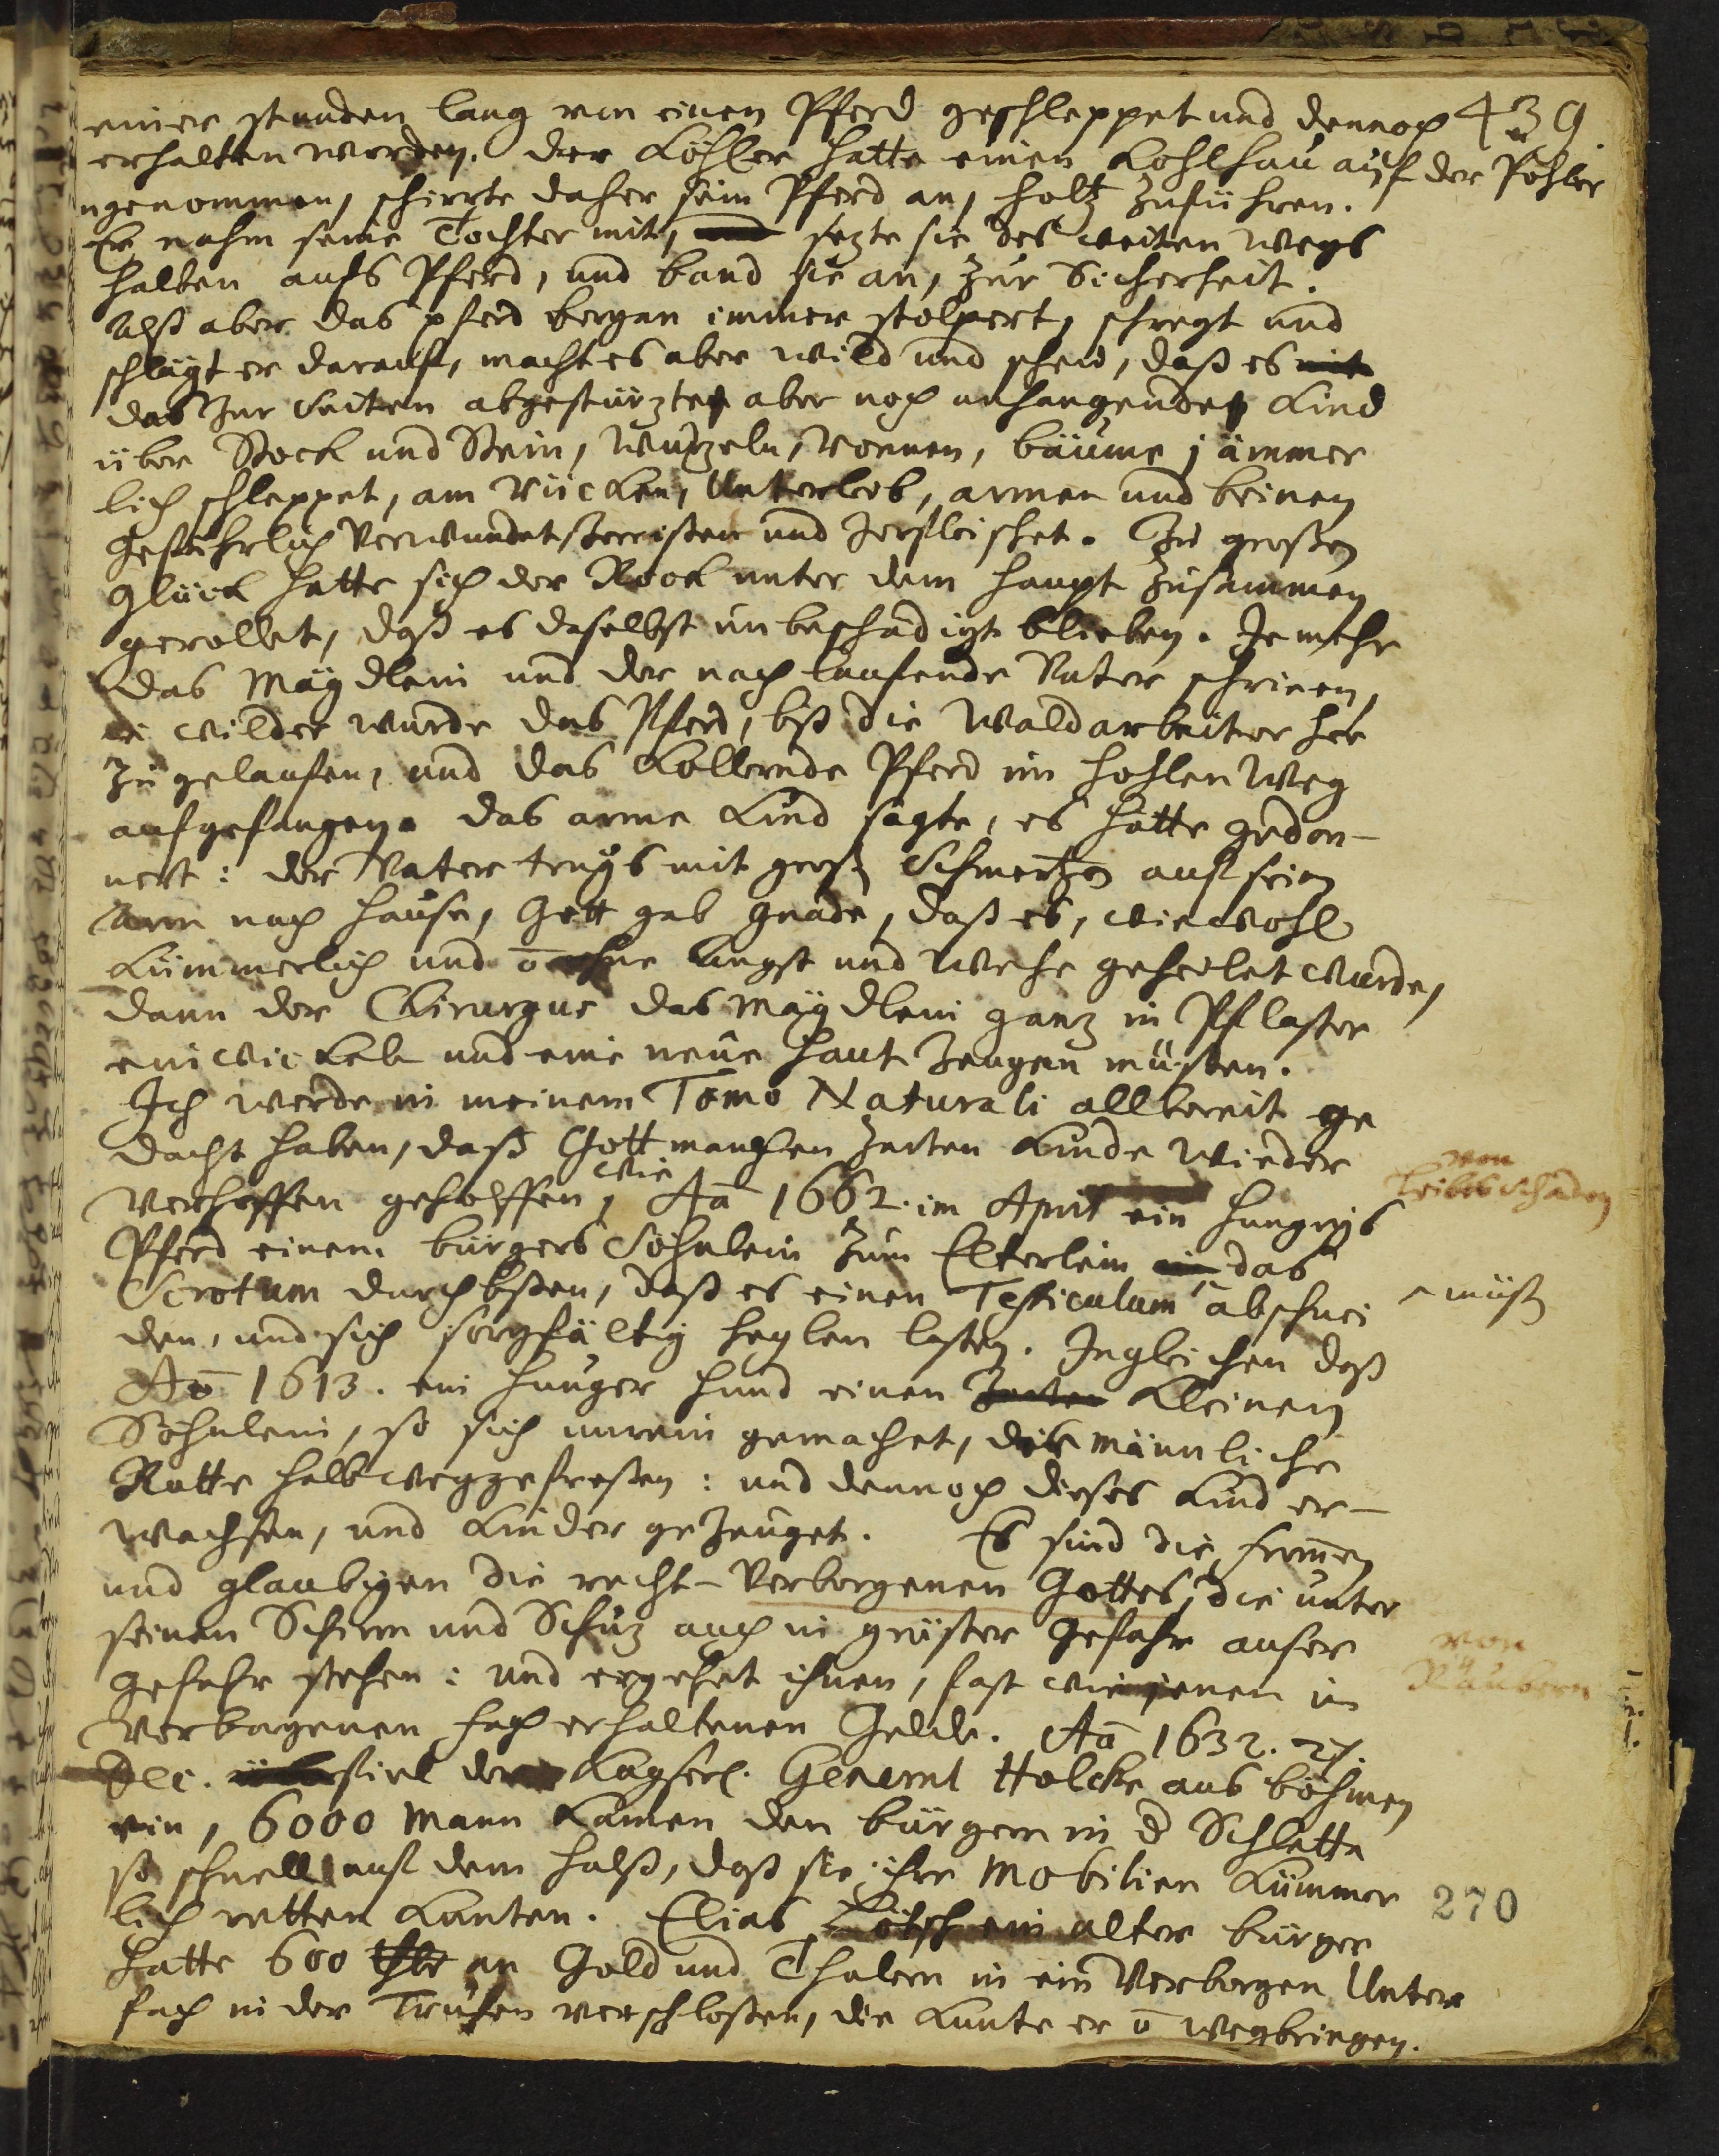 einer stunden lang von einen Pferd geschleppet und dennoch 439.
erhalten worden. Der Köhler hatte einen Kohlhau auf der Pöhler
ngenommen, schirrte daher sein Pferd an, holtz zuführen.
Er nahm seine Tochter mit, und sezte sie des weiten wegs
halben aufs Pferd, und band sie an, zur Sicherheit.
Alß aber das pferd bergan immer stolpert, schregt und
schlägt er darauf, macht es aber wild und scheu, daß es mit
das zur Seiten abgestürzte aber noch anhangende Kind
über Stock und Stein, Wurzeln, Ronnen, bäume jämmer
lich schleppet, am Rücken, Unterleib, armen und beinen
gefährlich verwundet zerrissen und zerfleischet. Zu großen
glück hatte sich der Rock unter dem haupt zusammen
gerollet, daß es daselbst unbeschädigt blieben. Je mehr
das Mägdlein und der nach lauffende Vater schrieen,
ie wilder wurde das Pferd, biß die Waldarbeiter her
zu gelaufen, und das Kollernde Pferd im hohlen Weg
aufgefangen. das arme Kind sagte, es hätte gedon-
nert: der Vater trugs mit groß Schmertzen auf sein
Arm nach Hause, Gott gab gnade, daß es, wiewohl
Kümmerlich und ō ohne angst und Wehe geheilet wurde,
dann der Chirurgus das Mägdlein ganz in Pflaster
einwickeln und eine neue haut zeugen müssen.
Ich werde in meinem Tomo Naturali allbereit ge
dacht haben, daß Gott manchen zarten Kinde wieder
verhoffen geholffen, wie Aō 1662. im April ein hungrigs
von
Leibesschäden
Pferd einem bürgers Söhnlein zum Elterlein in das
Scrotum durchbißen, daß es einen Testiculum abschnei
^ müß
den, und sich sorgfältig heylen laßen. Ingleichen daß
Aō 1613. ein hunger hund einen zarten Kleinen
Söhnlein, so sich unrein gemachet, die männliche
Rutte halb weggefreßen: und dennoch dieses Kind er-
wachsen, und Kinder gezeuget. Es sind die from̄en
und glaubigen die recht-Verborgenen Gottes, die unter
seinen Schirm und Schuz auch in gröster gefahr auser
gefahr stehen: und ergehet ihnen, fast wie jenen im
von
Räubern
verborgenen fach erhaltenen Gelde. Aō 1632. 27.
Dec. überfiel der Kayserl. General Holcke aus böhmen
ein, 6000 Mann kamen den bürgern in d Schletta
so schnell auf dem halß, daß sie ihre Mobilien Kümmer
lich retten Kunten. Elias ein alter bürger
270
hatte 600 thlr an Gold und Thalern in ein verborgen Unter
fach in der Truhen verschloßen, die Kunte er ō wegbringen.